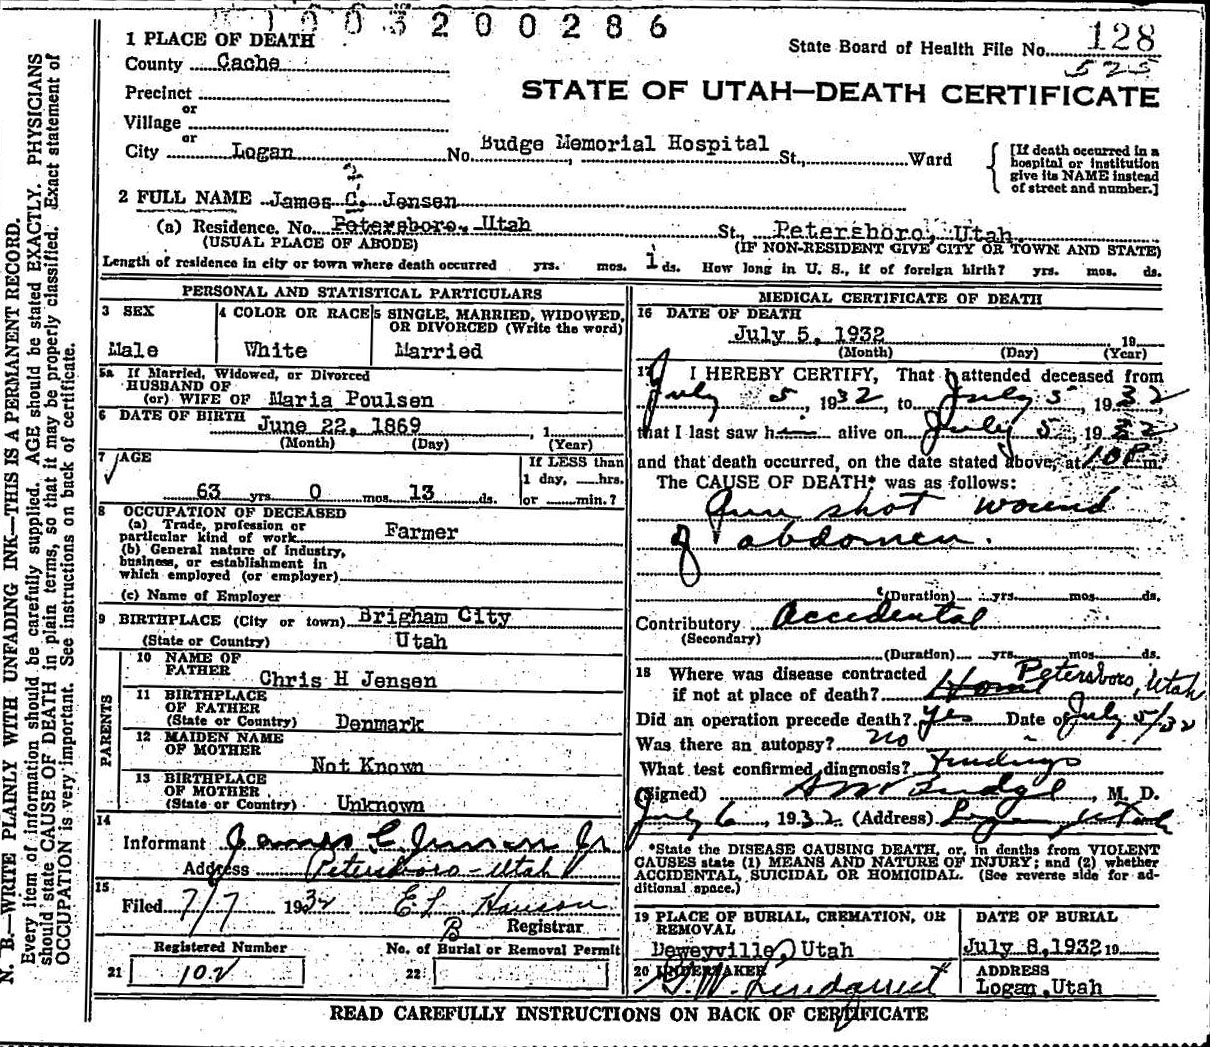 1003200286
1 PLACE OF DEATH
County Cache
State Board of Health File No. 128
525
Precinct
or
Village
or
STATE OF UTAH—DEATH CERTIFICATE
City Logan No. Budge Memorial Hospital St., Ward
[If death occurred in a
hospital or institution
give its NAME instead
of street and number.]
2 FULL NAME James C. Jensen
(a) Residence. No. Petersboro, Utah St., Petersboro, Utah.
(USUAL PLACE OF ABODE) (IF NON-RESIDENT GIVE CITY OR TOWN AND STATE)
Length of residence in city or town where death occurred yrs. mos. 1 ds. How long in U. S., if of foreign birth? yrs. mos. ds.
PERSONAL AND STATISTICAL PARTICULARS
3 SEX 4 COLOR OR RACE 5 SINGLE, MARRIED, WIDOWED,
OR DIVORCED (Write the word)
Male White Married
5a If Married, Widowed, or Divorced
HUSBAND OF
(or) WIFE OF Maria Poulsen
6 DATE OF BIRTH June 22, 1869, 1
(Month) (Day) (Year)
7 AGE If LESS than
1 day, hrs.
63 yrs. 0 mos. 13 ds. or min.?
8 OCCUPATION OF DECEASED
(a) Trade, profession or
particular kind of work Farmer
(b) General nature of industry,
business, or establishment in
which employed (or employer)
(c) Name of Employer
9 BIRTHPLACE (City or town) Brigham City
(State or Country) Utah
PARENTS
10 NAME OF
FATHER Chris H Jensen
11 BIRTHPLACE
OF FATHER
(State or Country) Denmark
12 MAIDEN NAME
OF MOTHER
Not Known
13 BIRTHPLACE
OF MOTHER
(State or Country) Unknown
14
Informant James C. Jensen Jr
Address Petersboro - Utah
15
Filed 7/7 1932 E L Hanson
B Registrar
Registered Number No. of Burial or Removal Permit
21 102 22:
MEDICAL CERTIFICATE OF DEATH
16 DATE OF DEATH
July 5, 1932 19
(Month) (Day) (Year)
17 I HEREBY CERTIFY, That I attended deceased from
July 5, 1932, to July 5, 1932,
that I last saw him alive on July 5, 1932
and that death occurred, on the date stated above, at 10 P m.
The CAUSE OF DEATH* was as follows:
Gun shot wound
of abdomen.
(Duration) yrs. mos. ds.
Contributory Accidental
(Secondary)
(Duration) yrs. mos. ds.
18 Where was disease contracted
if not at place of death? Home Petersboro, Utah
Did an operation precede death? Yes Date of July 5/32
Was there an autopsy? no
What test confirmed diagnosis? Findings
(Signed) Budge, M. D.
July 6, 1932 (Address) Logan, Utah
*State the DISEASE CAUSING DEATH, or, in deaths from VIOLENT
CAUSES state (1) MEANS AND NATURE OF INJURY; and (2) whether
ACCIDENTAL, SUICIDAL OR HOMICIDAL. (See reverse side for ad-
ditional space.)
19 PLACE OF BURIAL, CREMATION, OR
REMOVAL
Deweyville, Utah
DATE OF BURIAL
July 8, 1932 19
20 UNDERTAKER
G.W. Lindquist
ADDRESS
Logan, Utah
READ CAREFULLY INSTRUCTIONS ON BACK OF CERTIFICATE
N. B.—WRITE PLAINLY WITH UNFADING INK—THIS IS A PERMANENT RECORD.
Every item of information should be carefully supplied. AGE should be stated EXACTLY. PHYSICIANS
should state CAUSE OF DEATH in plain terms, so that it may be properly classified. Exact statement of
OCCUPATION is very important. See instructions on back of certificate.